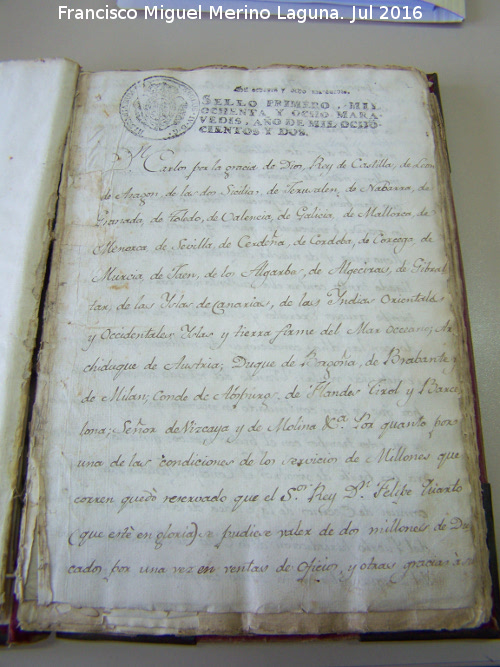 Francisco Miguel Merino Laguna. Jul 2016
SELLO PRIMERO, MIL
OCHENTA Y OCHO MARA
VEDIS, AÑO DE MIL OCHO
CIENTOS Y DOS.
Dn. Carlos por la gracia de Dios, Rey de Castilla, de Leon
de Aragon, de las dos Sicilias, de Jerusalen, de Nabarra, de
Granada, de Toledo, de Valencia, de Galicia, de Mallorca, de
Menorca, de Sevilla, de Cerdeña, de Cordoba, de Corcega, de
Murcia, de Jaen, de los Algarbes, de Algeciras, de Gibral
tar, de las Yslas de Canarias, de las Yndias Orientales
y Occidentales Yslas y tierra firme del Mar Occeano; Ar
chiduque de Austria; Duque de Borgoña, de Brabante
de Milan; Conde de Abspurg, de Flandes Tirol y Barce
lona; Señor de Vizcaya y de Molina &a. Por quanto por
una de las condiciones de los servicios de Millones que
corren quedó reservado que el Sor. Rey Dn. Felipe Quarto
(que esté en gloria) se pudiese valer de dos millones de Du
cados por una vez en ventas de Oficios, y otras gracias á